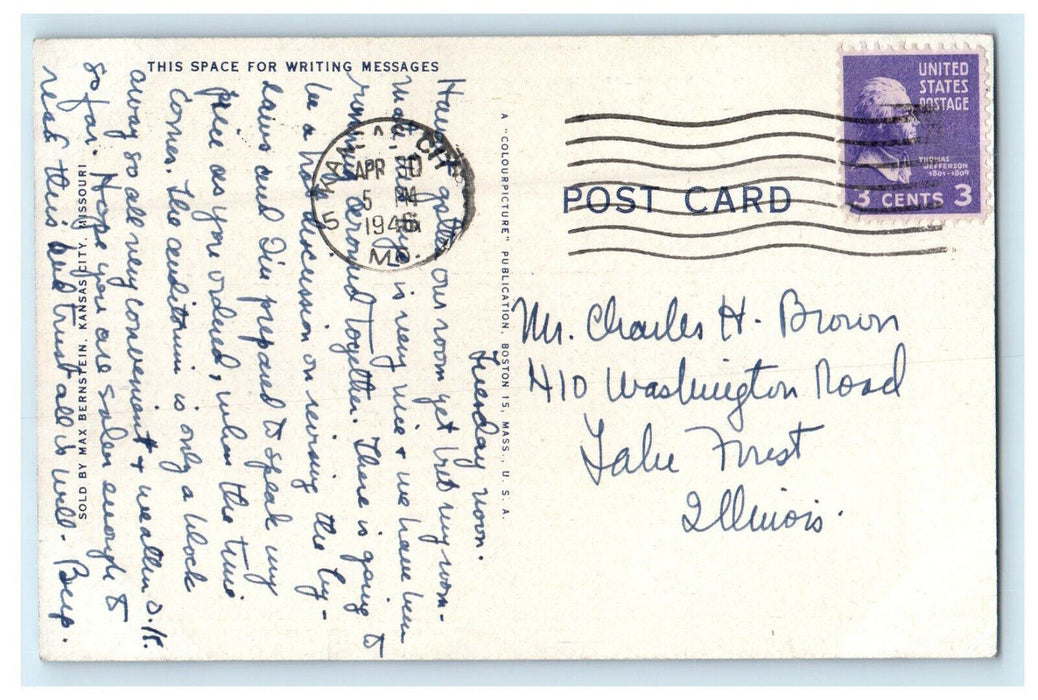 THIS SPACE FOR WRITING MESSAGES
Tuesday noon.
Haven't gotten our room yet but my room-
mate, is very nice & we have been
running around together. There is going to
be a hot discussion on revising the by-
laws and I'm prepared to speak my
piece as you ordered, when the time
comes. The auditorium is only a block
away so all very convenient & weather O.K.
so far. Hope you are sober enough to
read this and trust all is well. Beep.
SOLD BY MAX BERNSTEIN, KANSAS CITY, MISSOURI
A "COLOURPICTURE" PUBLICATION, BOSTON 15, MASS., U. S. A.
KANSAS CITY
APR 30
5 PM
1946
5
MO.
UNITED
STATES
POSTAGE
THOMAS
JEFFERSON
1801-1809
3 CENTS 3
POST CARD
Mr. Charles H. Brown
410 Washington Road
Lake Forest
Illinois.